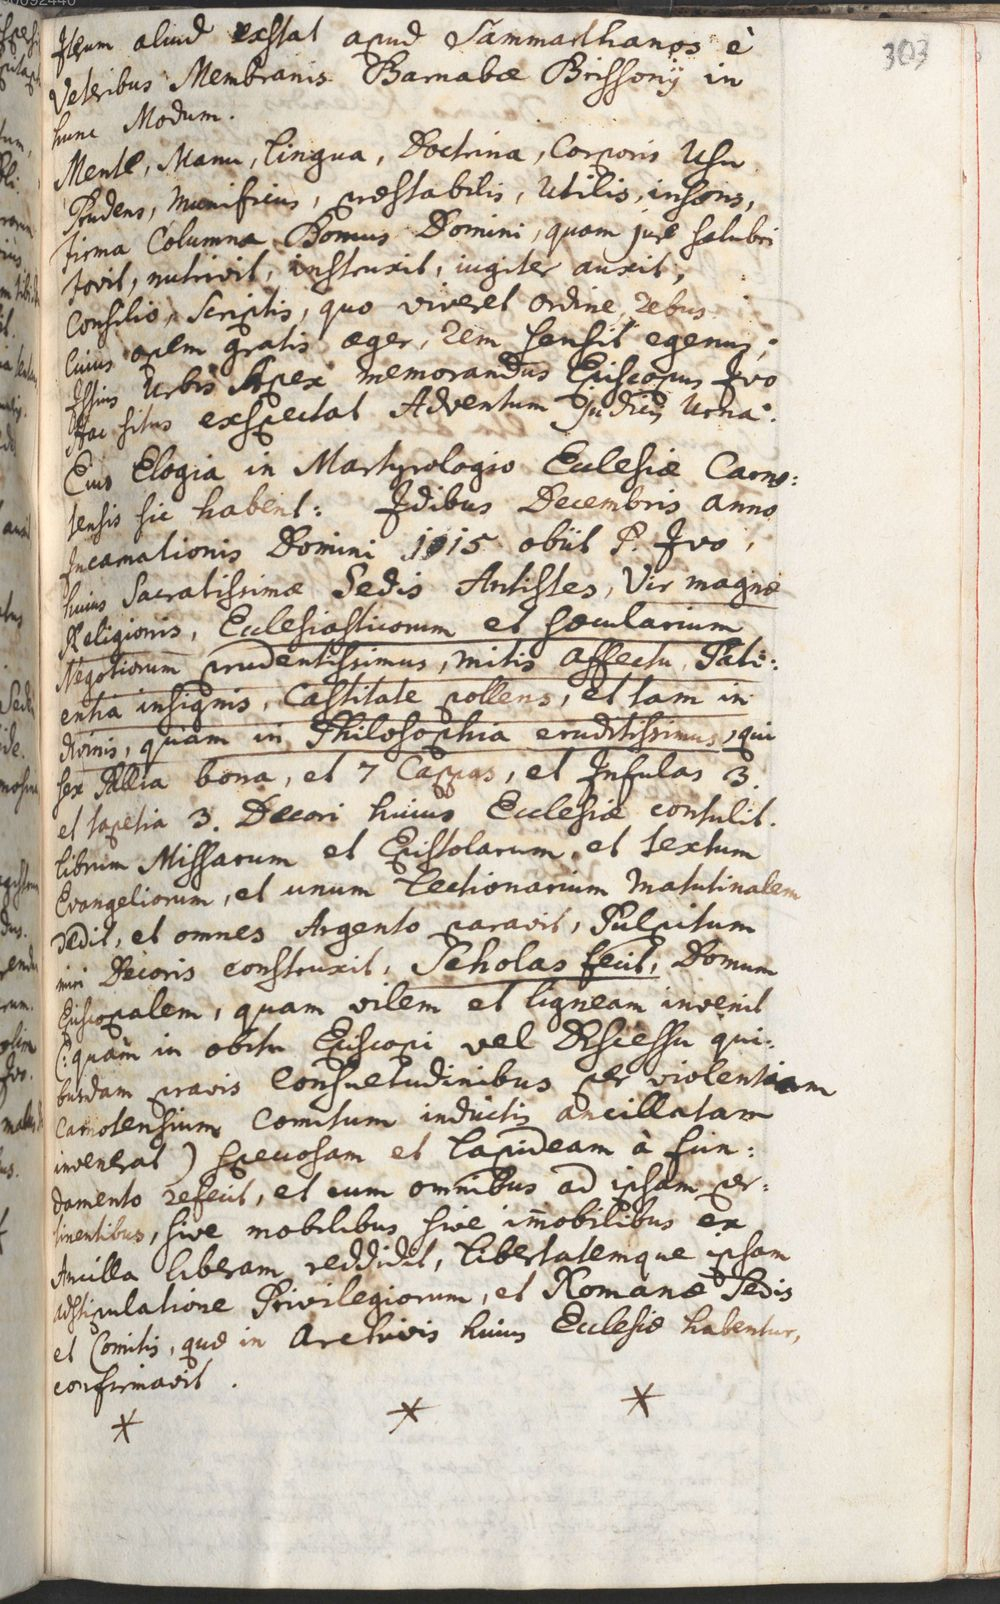 303
Iterum aliud exstat apud Sammarthanos è
Veteribus Membranis Barnabæ Brissonij in
hunc Modum.
Mente, Manu, Lingua, Doctrina, Corporis Usu
Prudens, Munificus, præstabilis, Utilis, insons,
Firma Columna Bonus Domini, quam jure salubri
Fovit, nutrivit, instruxit, iugiter auxit,
Consilio, Scriptis, quo viveret Ordine, rebus
Cuius opem gratis æger, rem sensit egenus;
Ipsius Urbis Apex memorandus Episcopus Ivo
Hac situs exspectat Adventum Judicis Urna.
Eius Elogia in Martyrologio Eclesiæ Carno:
tensis sic habent: Idibus Decembris anno
Incarnationis Domini 1115 obiit P. Ivo,
huius Sacratissimæ Sedis Antistes, Vir magnæ
Religionis, Eclesiasticorum et sæcularium
Negotiorum prudentissimus, mitis affectu, Pati:
entia insignis, Castitate pollens, et tam in
divinis, quam in Philosophia eruditissimus, qui
sex Pallia bona, et 7 Cappas, et Infulas 3.
et tapetia 3. Decori huius Ecclesiæ contulit.
librum Missarum et Epistolarum, et textum
Evangeliorum, et unum Lectionarium Matutinalem
dedit, et omnes Argento paravit, Pulpitum
miri Decoris construxit, Scholas fecit, Domum
Episcopalem, quam vilem et ligneam invenit
(: quam in obitu Episcopi vel Discessu qui:
busdam pravis Consuetudinibus per violentiam
Carnotensium Comitum inductis ancillatam
invenerat ) speciosam et lapideam à fun:
damento refecit, et cum omnibus ad ipsam per:
tinentibus, sive mobilibus sive im̄obilibus ex
Ancilla liberam reddidit, Libertatemque ipsam
adstipulatione Privilegiorum, et Romanæ Sedis
et Comitis, quæ in Archivis huius Eclesiæ habentur,
confirmavit.
* * *